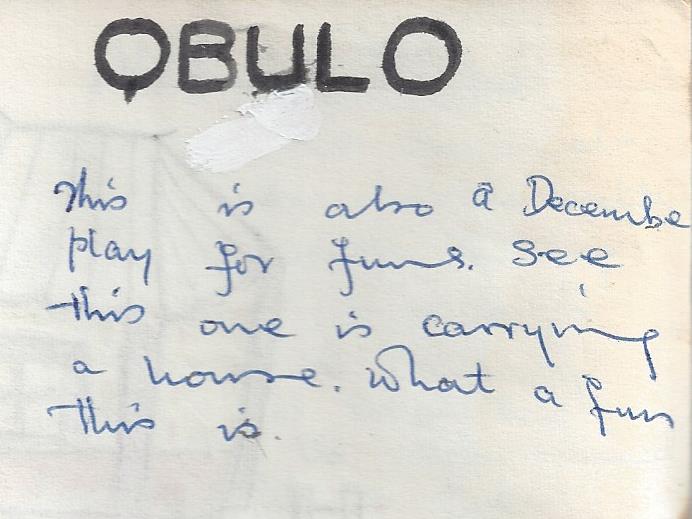 ỌBULO
This is also a Decembe
play for funs. See
this one is carrying
a house. What a fun
this is.